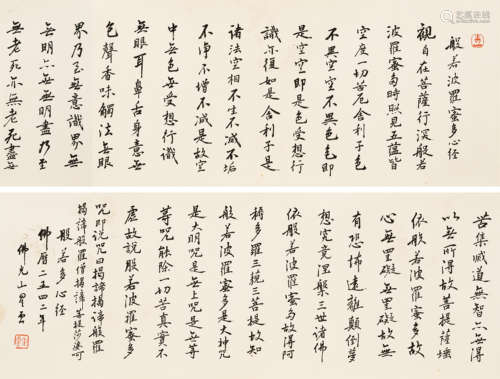 般若波羅蜜多心經
觀自在菩薩行深般若
波羅蜜多時照見五蘊皆
空度一切苦厄舍利子色
不異空空不異色色即
是空空即是色受想行
識亦復如是舍利子是
諸法空相不生不滅不垢
不淨不增不減是故空
中無色無受想行識
無眼耳鼻舌身意無
色聲香味觸法無眼
界乃至無意識界無
無明亦無無明盡乃至
無老死亦無老死盡無
苦集滅道無智亦無得
以無所得故菩提薩埵
依般若波羅蜜多故
心無罣礙無罣礙故無
有恐怖遠離顛倒夢
想究竟涅槃三世諸佛
依般若波羅蜜多故得阿
耨多羅三藐三菩提故知
般若波羅蜜多是大神咒
是大明咒是無上咒是無等
等咒能除一切苦真實不
虛故說般若波羅蜜多
咒即說咒曰揭諦揭諦般羅
揭諦般羅僧揭諦菩提莎婆呵
般若多心經
佛曆二五四二年
佛光山星雲